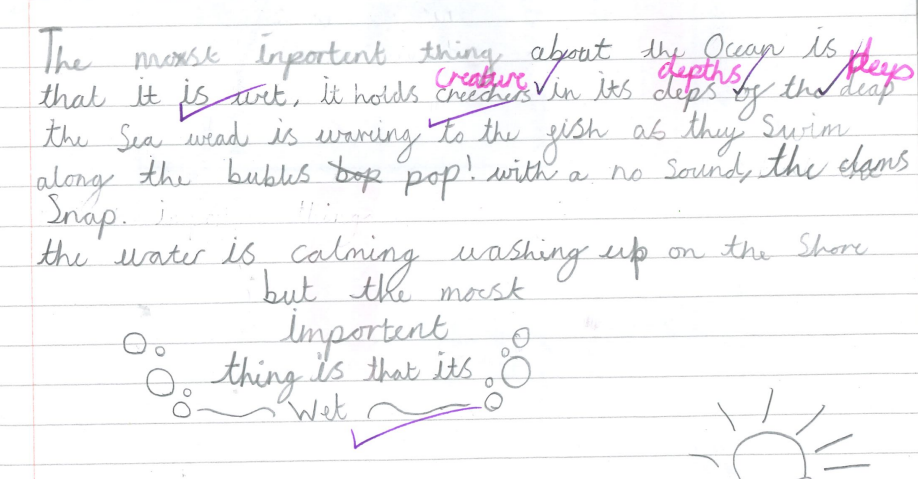 The morst inportent thing about the Ocean is
creature depths deep
that it is wet, it holds creechers in its deps of the deap
the Sea wead is waveing to the fish as they Swim
along the bubbls bop pop! with a no Sound, the clams
Snap.
the water is calming washing up on the Shore
but the morst
importent
thing is that its
Wet